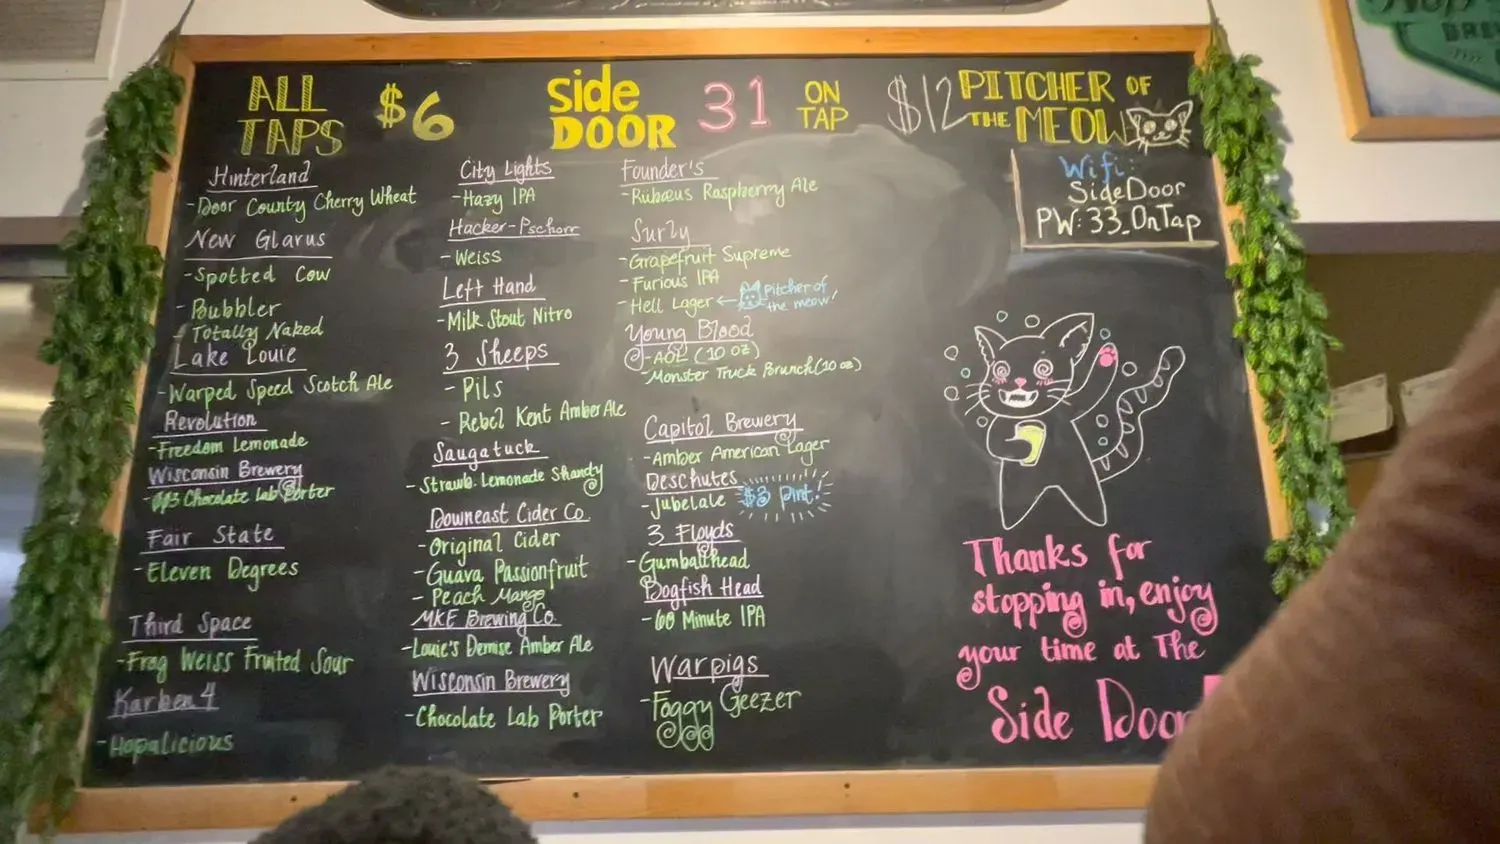 ALL TAPS $6
Side DOOR
31 ON TAP
$12 PITCHER OF THE MEOW
Hinterland
- Door County Cherry Wheat
New Glarus
- Spotted Cow
- Bubbler
- Totally Naked
Lake Louie
- Warped Speed Scotch Ale
Revolution
- Freedom Lemonade
Wisconsin Brewery
Chocolate Lab Porter
Fair State
- Eleven Degrees
Third Space
- Frog Weiss Fruited Sour
Karben 4
- Hopalicious
City Lights
- Hazy IPA
Hacker-Pschorr
- Weiss
Left Hand
- Milk Stout Nitro
3 Sheeps
- Pils
- Rebel Kent Amber Ale
Saugatuck
- Strawb. Lemonade Shandy
Downeast Cider Co.
- Original Cider
- Guava Passionfruit
- Peach Mango
MKE Brewing Co.
- Louie's Demise Amber Ale
Wisconsin Brewery
- Chocolate Lab Porter
Founder's
- Rübæus Raspberry Ale
Surly
- Grapefruit Supreme
- Furious IPA
- Hell Lager ← Pitcher of the meow!
Young Blood
- AOE (10 oz)
- Monster Truck Brunch (10 oz)
Capitol Brewery
- Amber American Lager
Deschutes
- Jubelale $3 pint!
3 Floyds
- Gumballhead
Dogfish Head
- 60 Minute IPA
Warpigs
- Foggy Geezer
Wifi:
SideDoor
PW: 33_OnTap
Thanks for
stopping in, enjoy
your time at The
Side Door